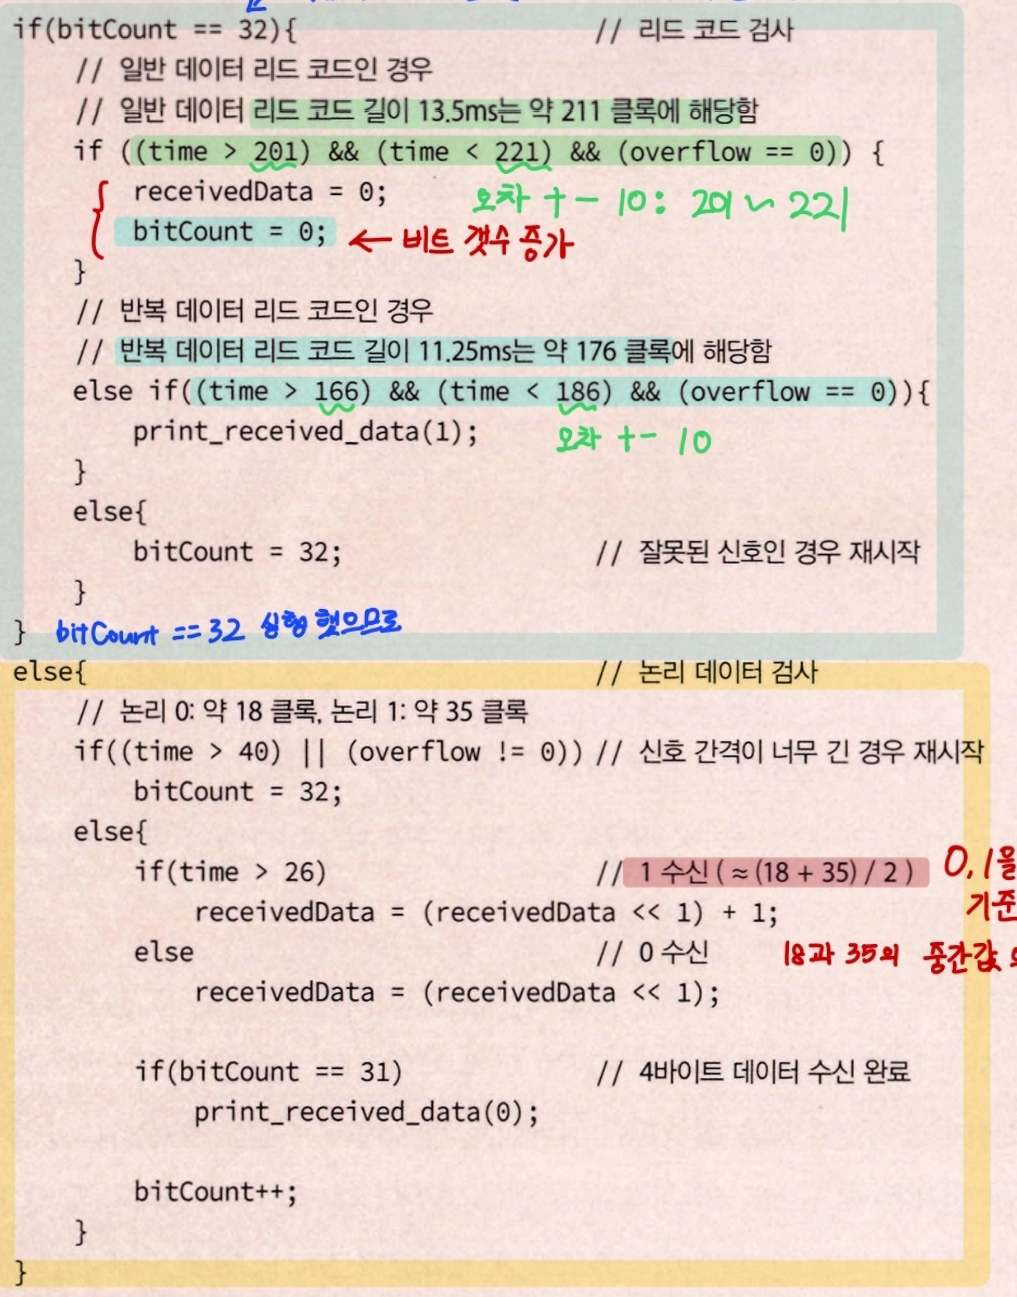 if(bitCount == 32){ // 리드 코드 검사
// 일반 데이터 리드 코드인 경우
// 일반 데이터 리드 코드 길이 13.5ms는 약 211 클록에 해당함
if ((time > 201) && (time < 221) && (overflow == 0)) {
receivedData = 0; 오차 +- 10: 201 ~ 221
bitCount = 0; ← 비트 갯수 증가
}
// 반복 데이터 리드 코드인 경우
// 반복 데이터 리드 코드 길이 11.25ms는 약 176 클록에 해당함
else if((time > 166) && (time < 186) && (overflow == 0)){
print_received_data(1); 오차 +- 10
}
else{
bitCount = 32; // 잘못된 신호인 경우 재시작
}
} bitCount == 32 실행 했으므로
else{ // 논리 데이터 검사
// 논리 0: 약 18 클록, 논리 1: 약 35 클록
if((time > 40) || (overflow != 0)) // 신호 간격이 너무 긴 경우 재시작
bitCount = 32;
else{
if(time > 26) // 1 수신 ( ≈ (18 + 35) / 2 ) 0,1을
receivedData = (receivedData << 1) + 1; 기준
else // 0 수신 18과 35의 중간값
receivedData = (receivedData << 1);
if(bitCount == 31) // 4바이트 데이터 수신 완료
print_received_data(0);
bitCount++;
}
}